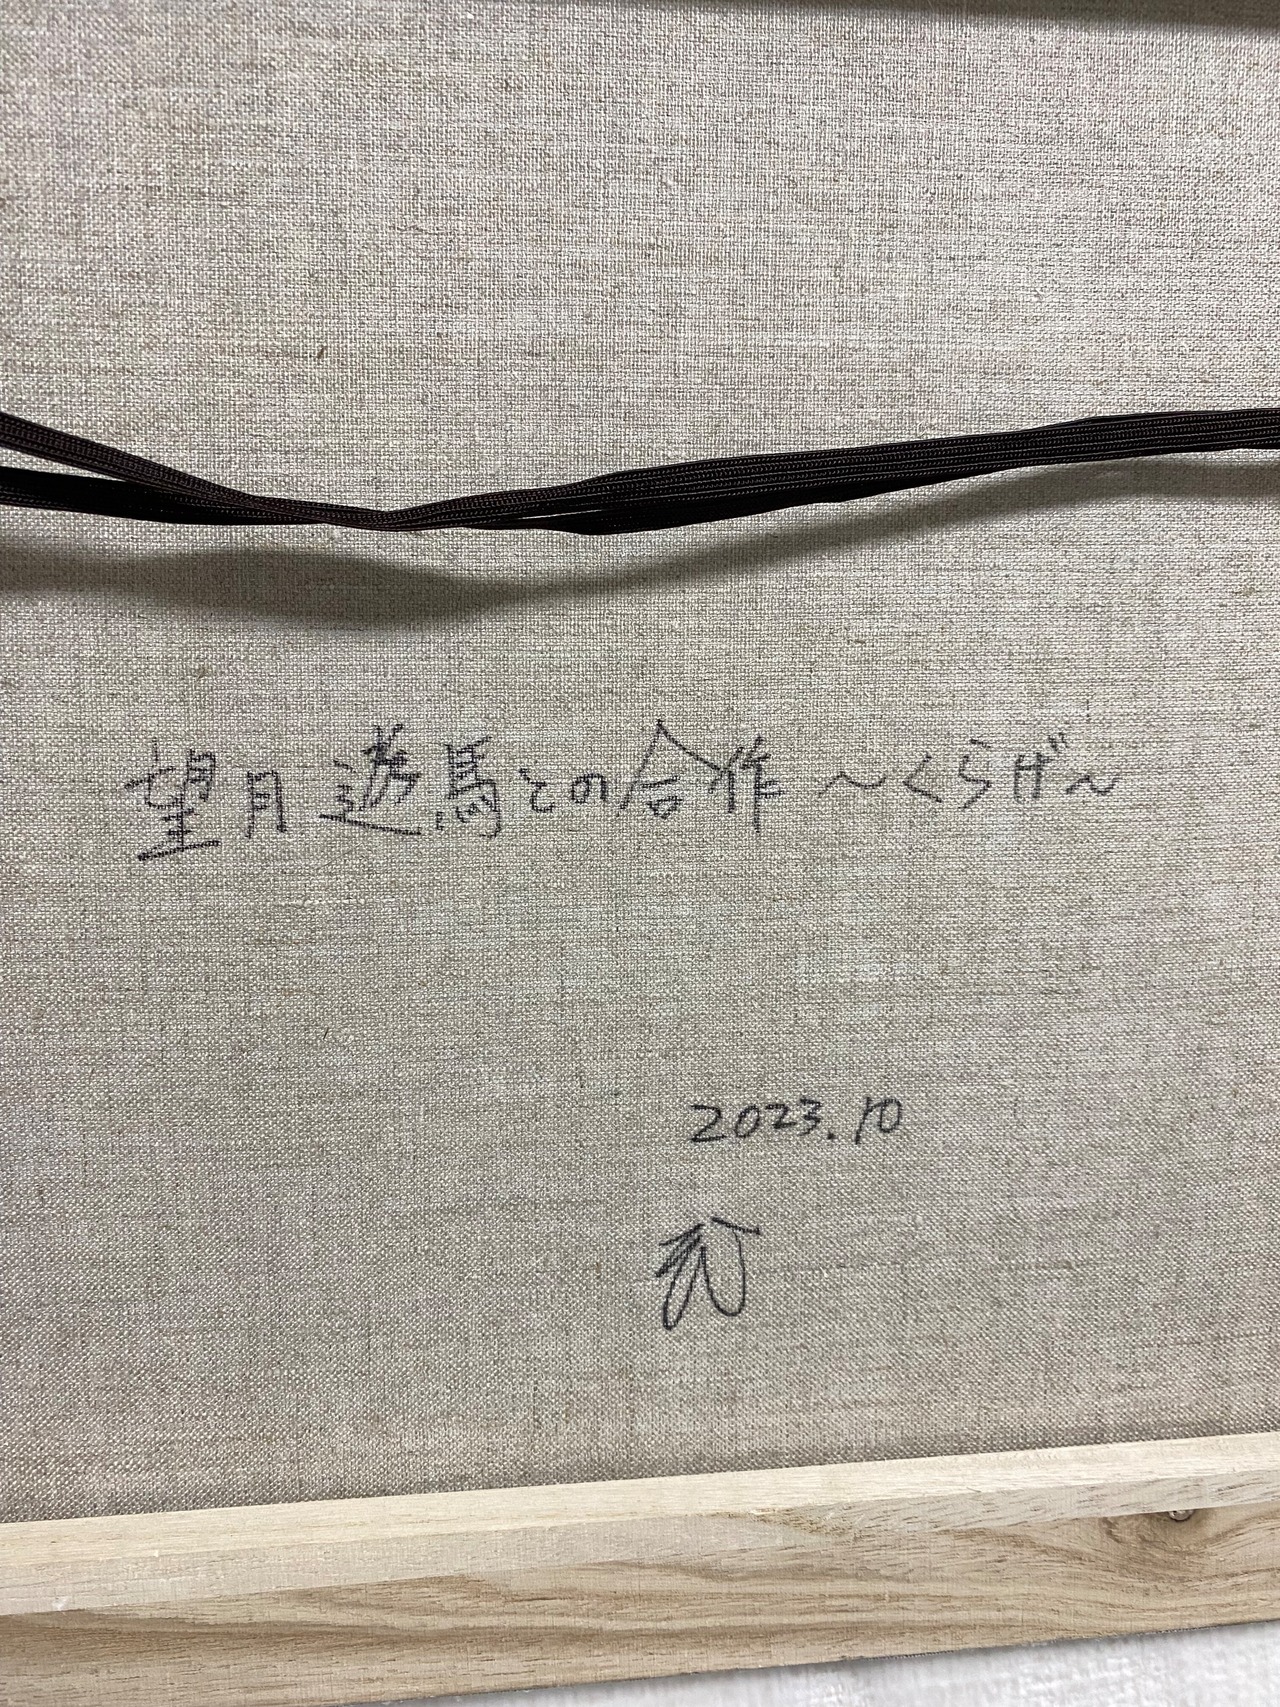 望月遊馬との合作 〜くらげ〜
2023.10